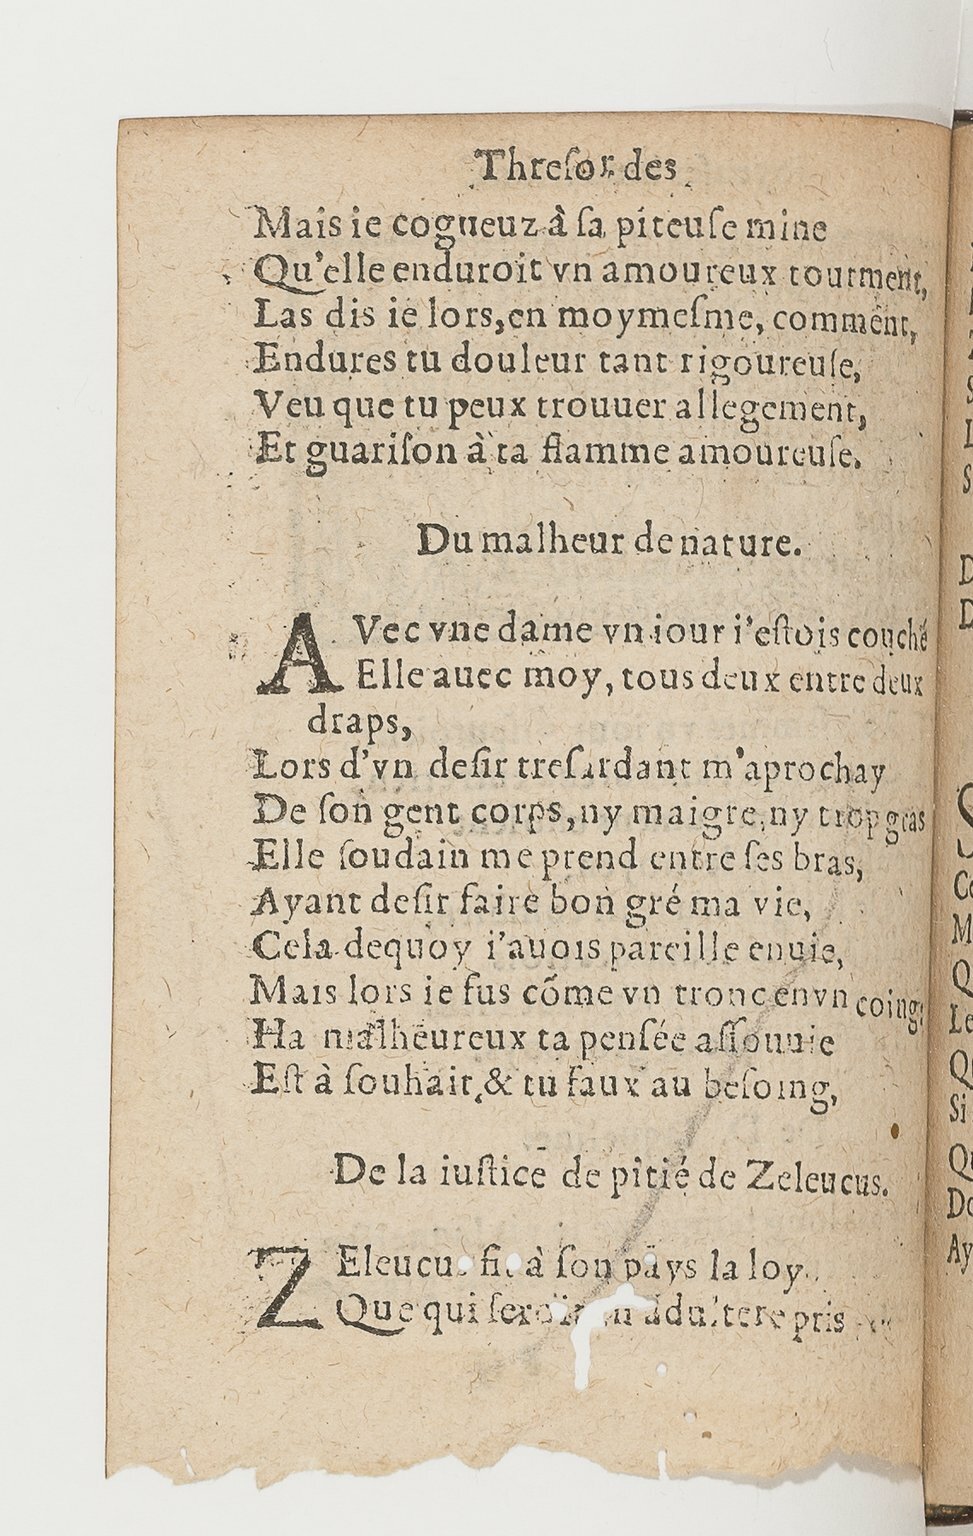 Threſor des
Mais ie cogneuz à ſa piteuſe mine
Qu'elle enduroit vn amoureux tourment,
Las dis ie lors, en moymeſme, comment,
Endures tu douleur tant rigoureuſe,
Veu que tu peux trouuer allegement,
Et guariſon à ta flamme amoureuſe.
Du malheur de nature.
AVec vne dame vn iour i'eſtois couché
Elle auec moy, tous deux entre deux
draps,
Lors d'vn deſir treſardant m'aprochay
De ſon gent corps, ny maigre, ny trop gras
Elle ſoudain me prend entre ſes bras,
Ayant deſir faire bon gré ma vie,
Cela dequoy i'auois pareille enuie,
Mais lors ie fus cõme vn tronc en vn coing,
Ha malheureux ta penſée aſſouuie
Eſt à ſouhait, & tu faux au beſoing,
De la iuſtice de pitié de Zeleucus.
ZEleucus fit à ſon pays la loy
Que qui ſeroit en adultere pris